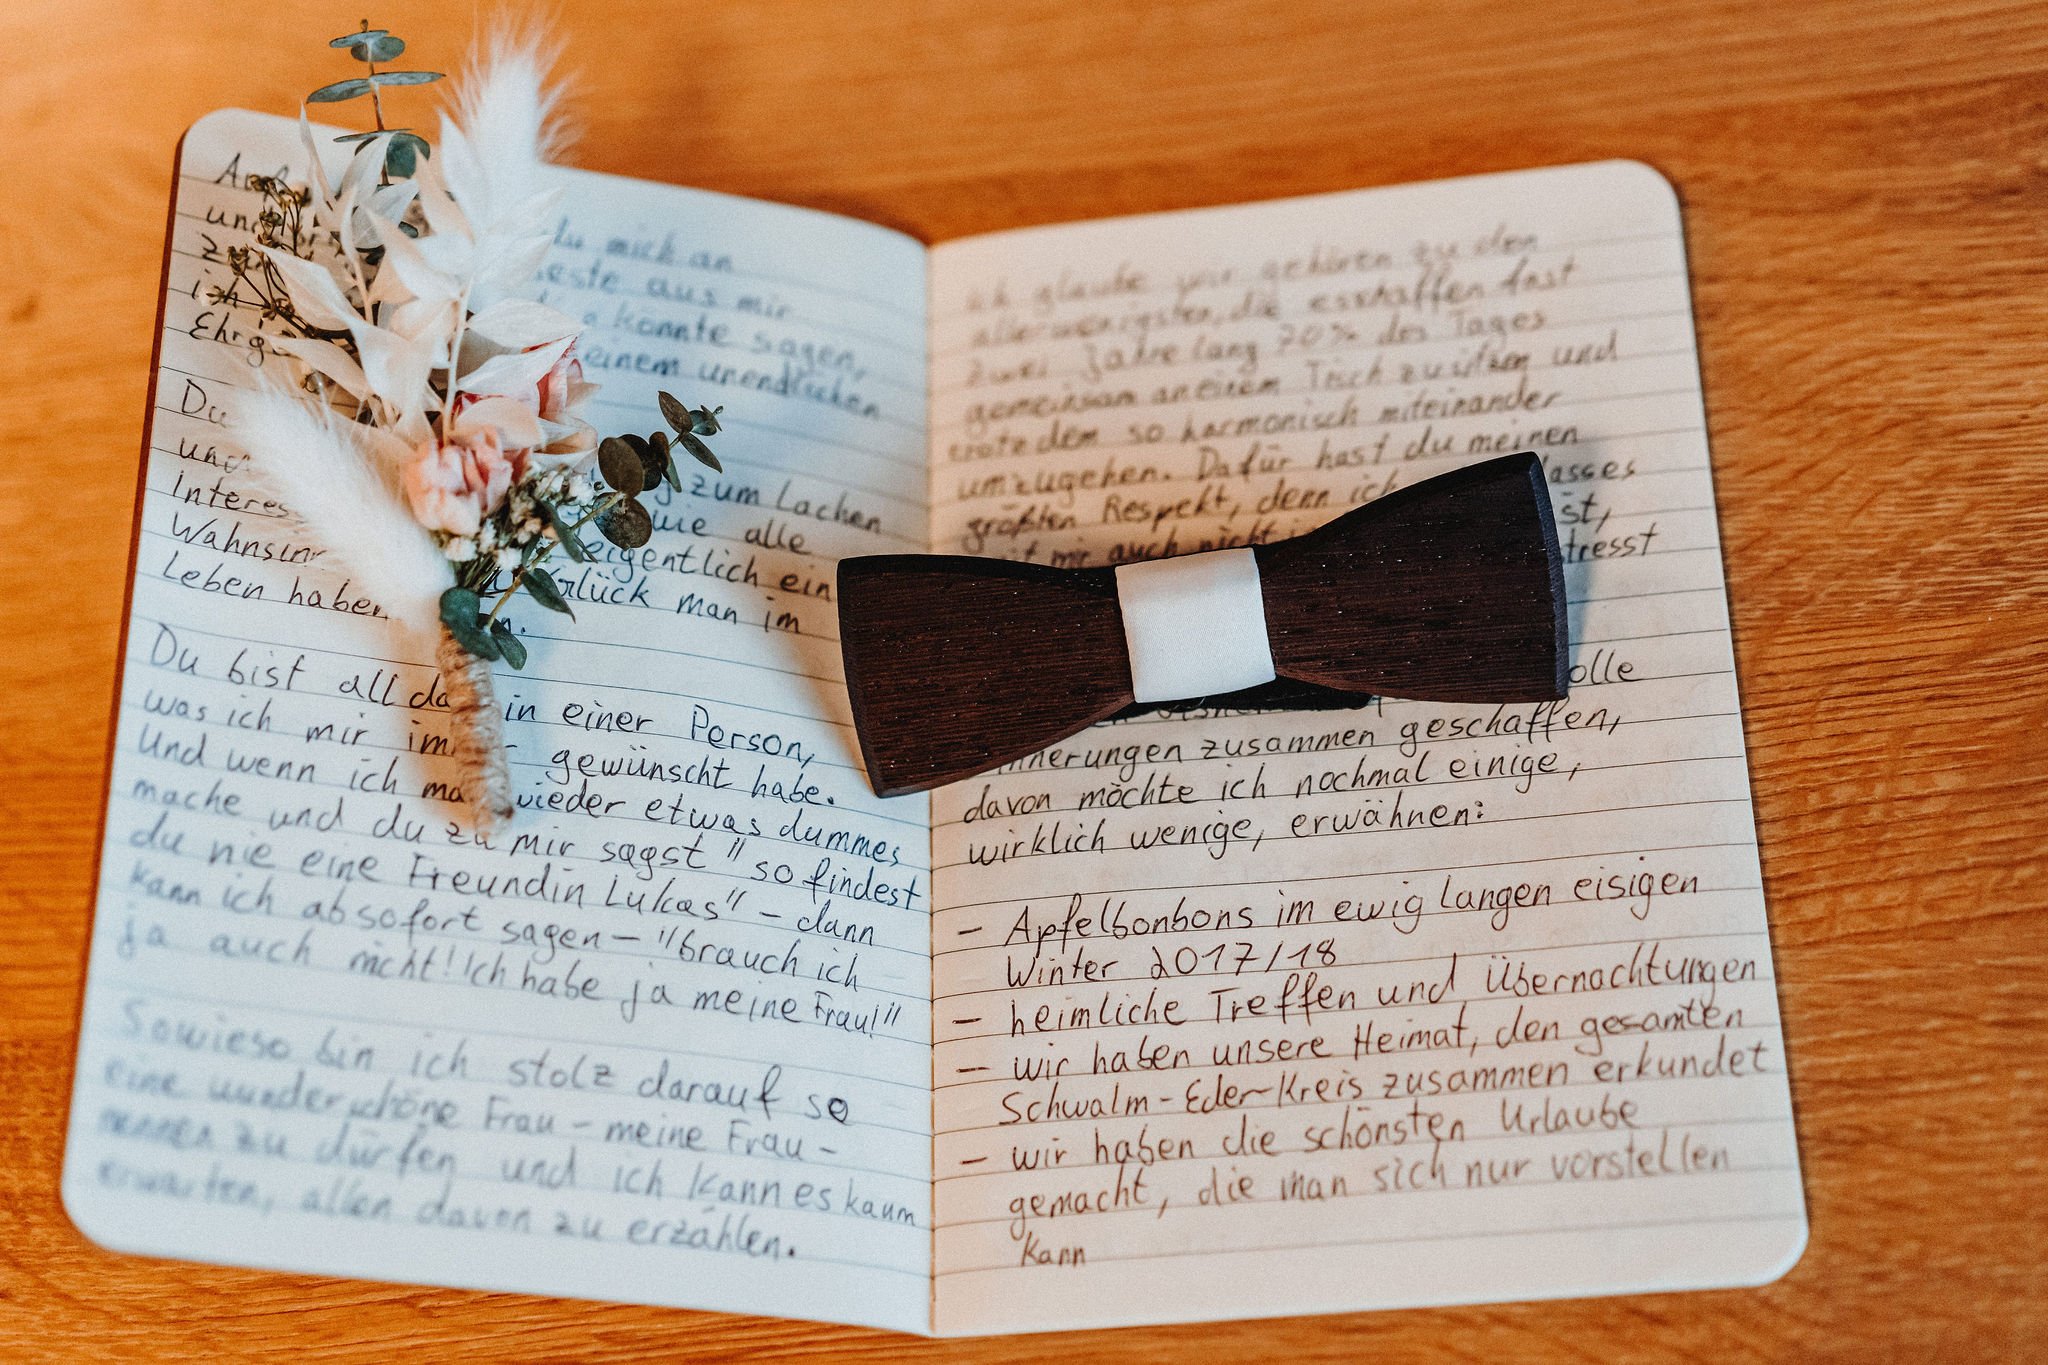 du mich an
aus mir
konnte sagen,
einem unendlichen
Ehrg
Du
und zum Lachen
Interess wie alle
Wahnsinn eigentlich ein
Leben haben Glück man im
Du bist all da in einer Person,
was ich mir im gewünscht habe.
Und wenn ich ma wieder etwas dummes
mache und du zu mir sagst "so findest
du nie eine Freundin Lukas" – dann
kann ich absofort sagen – "brauch ich
ja auch nicht! Ich habe ja meine Frau!"
Sowieso bin ich stolz darauf so
eine wunderschöne Frau – meine Frau –
nennen zu dürfen und ich kann es kaum
erwarten, allen davon zu erzählen.
ich glaube wir gehören zu den
allerwenigsten, die es schaffen fast
zwei Jahre lang 70% des Tages
gemeinsam an einem Tisch zu sitzen und
trotzdem so harmonisch miteinander
umzugehen. Dafür hast du meinen
größten Respekt, denn ich
mir auch nicht
stresst
olle
nnerungen zusammen geschaffen,
davon möchte ich nochmal einige,
wirklich wenige, erwähnen:
– Apfelbonbons im ewig langen eisigen
Winter 2017/18
– heimliche Treffen und Übernachtungen
– wir haben unsere Heimat, den gesamten
Schwalm-Eder-Kreis zusammen erkundet
– wir haben die schönsten Urlaube
gemacht, die man sich nur vorstellen
kann